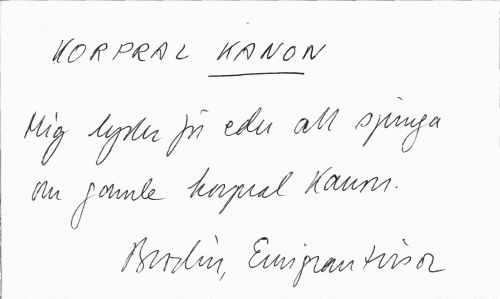 KORPRAL KANON
Mig lyster för eder att sjunga
om gamle korpral Kanon.
Brolin, Emigrantvisor